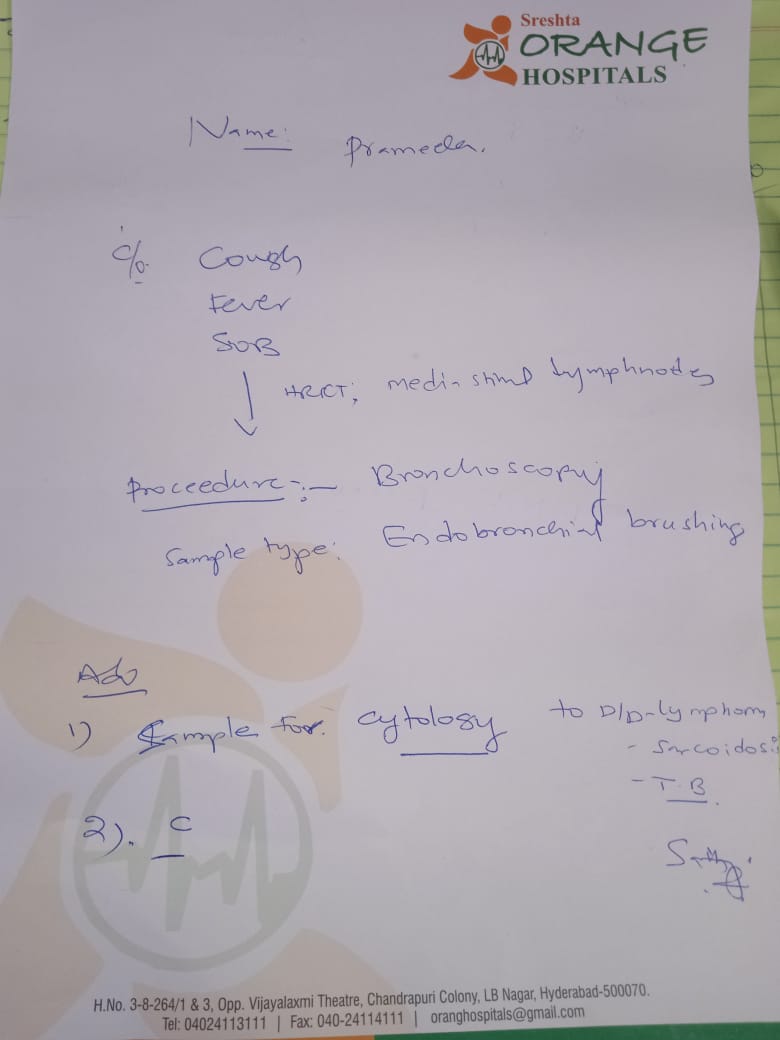 Sreshta
ORANGE
HOSPITALS
Name: Prameela.
C/o. Cough
Fever
SOB
HRCT; mediastinal lymphnodes
Proceedure :- Bronchoscopy
Sample type: Endobronchial brushing
Adv
1) Sample for. cytology to D/D-lymphoma
- Sarcoidosi
- T.B.
2). C
H.No. 3-8-264/1 & 3, Opp. Vijayalaxmi Theatre, Chandrapuri Colony, LB Nagar, Hyderabad-500070.
Tel: 04024113111 | Fax: 040-24114111 | oranghospitals@gmail.com